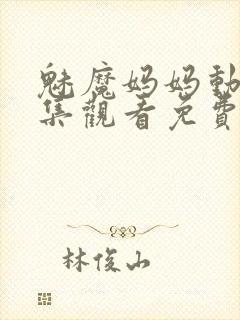 魅魔妈妈動
集觀看免費
林俊山